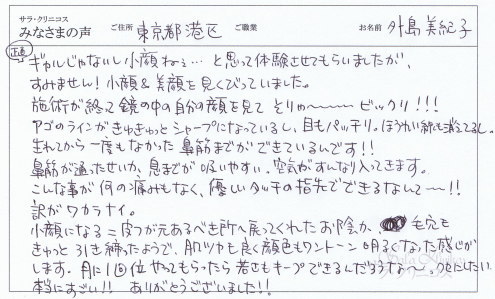 サラ・クリニコス
みなさまの声 ご住所 東京都港区 ご職業 お名前 外島美紀子
正直
ギャルじゃないし小顔ねぇ…と思って体験させてもらいましたが、
すみません!小顔&美顔を見くびっていました。
施術が終って鏡の中の自分の顔を見て そりゃ〜〜〜 ビックリ!!!
アゴのラインがきゅきゅっとシャープになっているし、目もパッチリ。ほうれい線も消えてるし。
生れてから一度もなかった鼻筋までができているんです!!
鼻筋が通ったせいか、息までが吸いやすい。空気がすんなり入ってきます。
こんな事が何の痛みもなく、優しいタッチの指先でできるなんて〜!!
訳がワカラナイ。
小顔になる=皮フが元あるべき所へ戻ってくれたお陰か、毛穴も
きゅっと引き締ったようで、肌ツヤも良く顔色もワントーン明るくなった感じが
します。月に1回位やってもらったら若さもキープできるんだろうな〜。クセにしたい
本当にすごい!! ありがとうございました!!